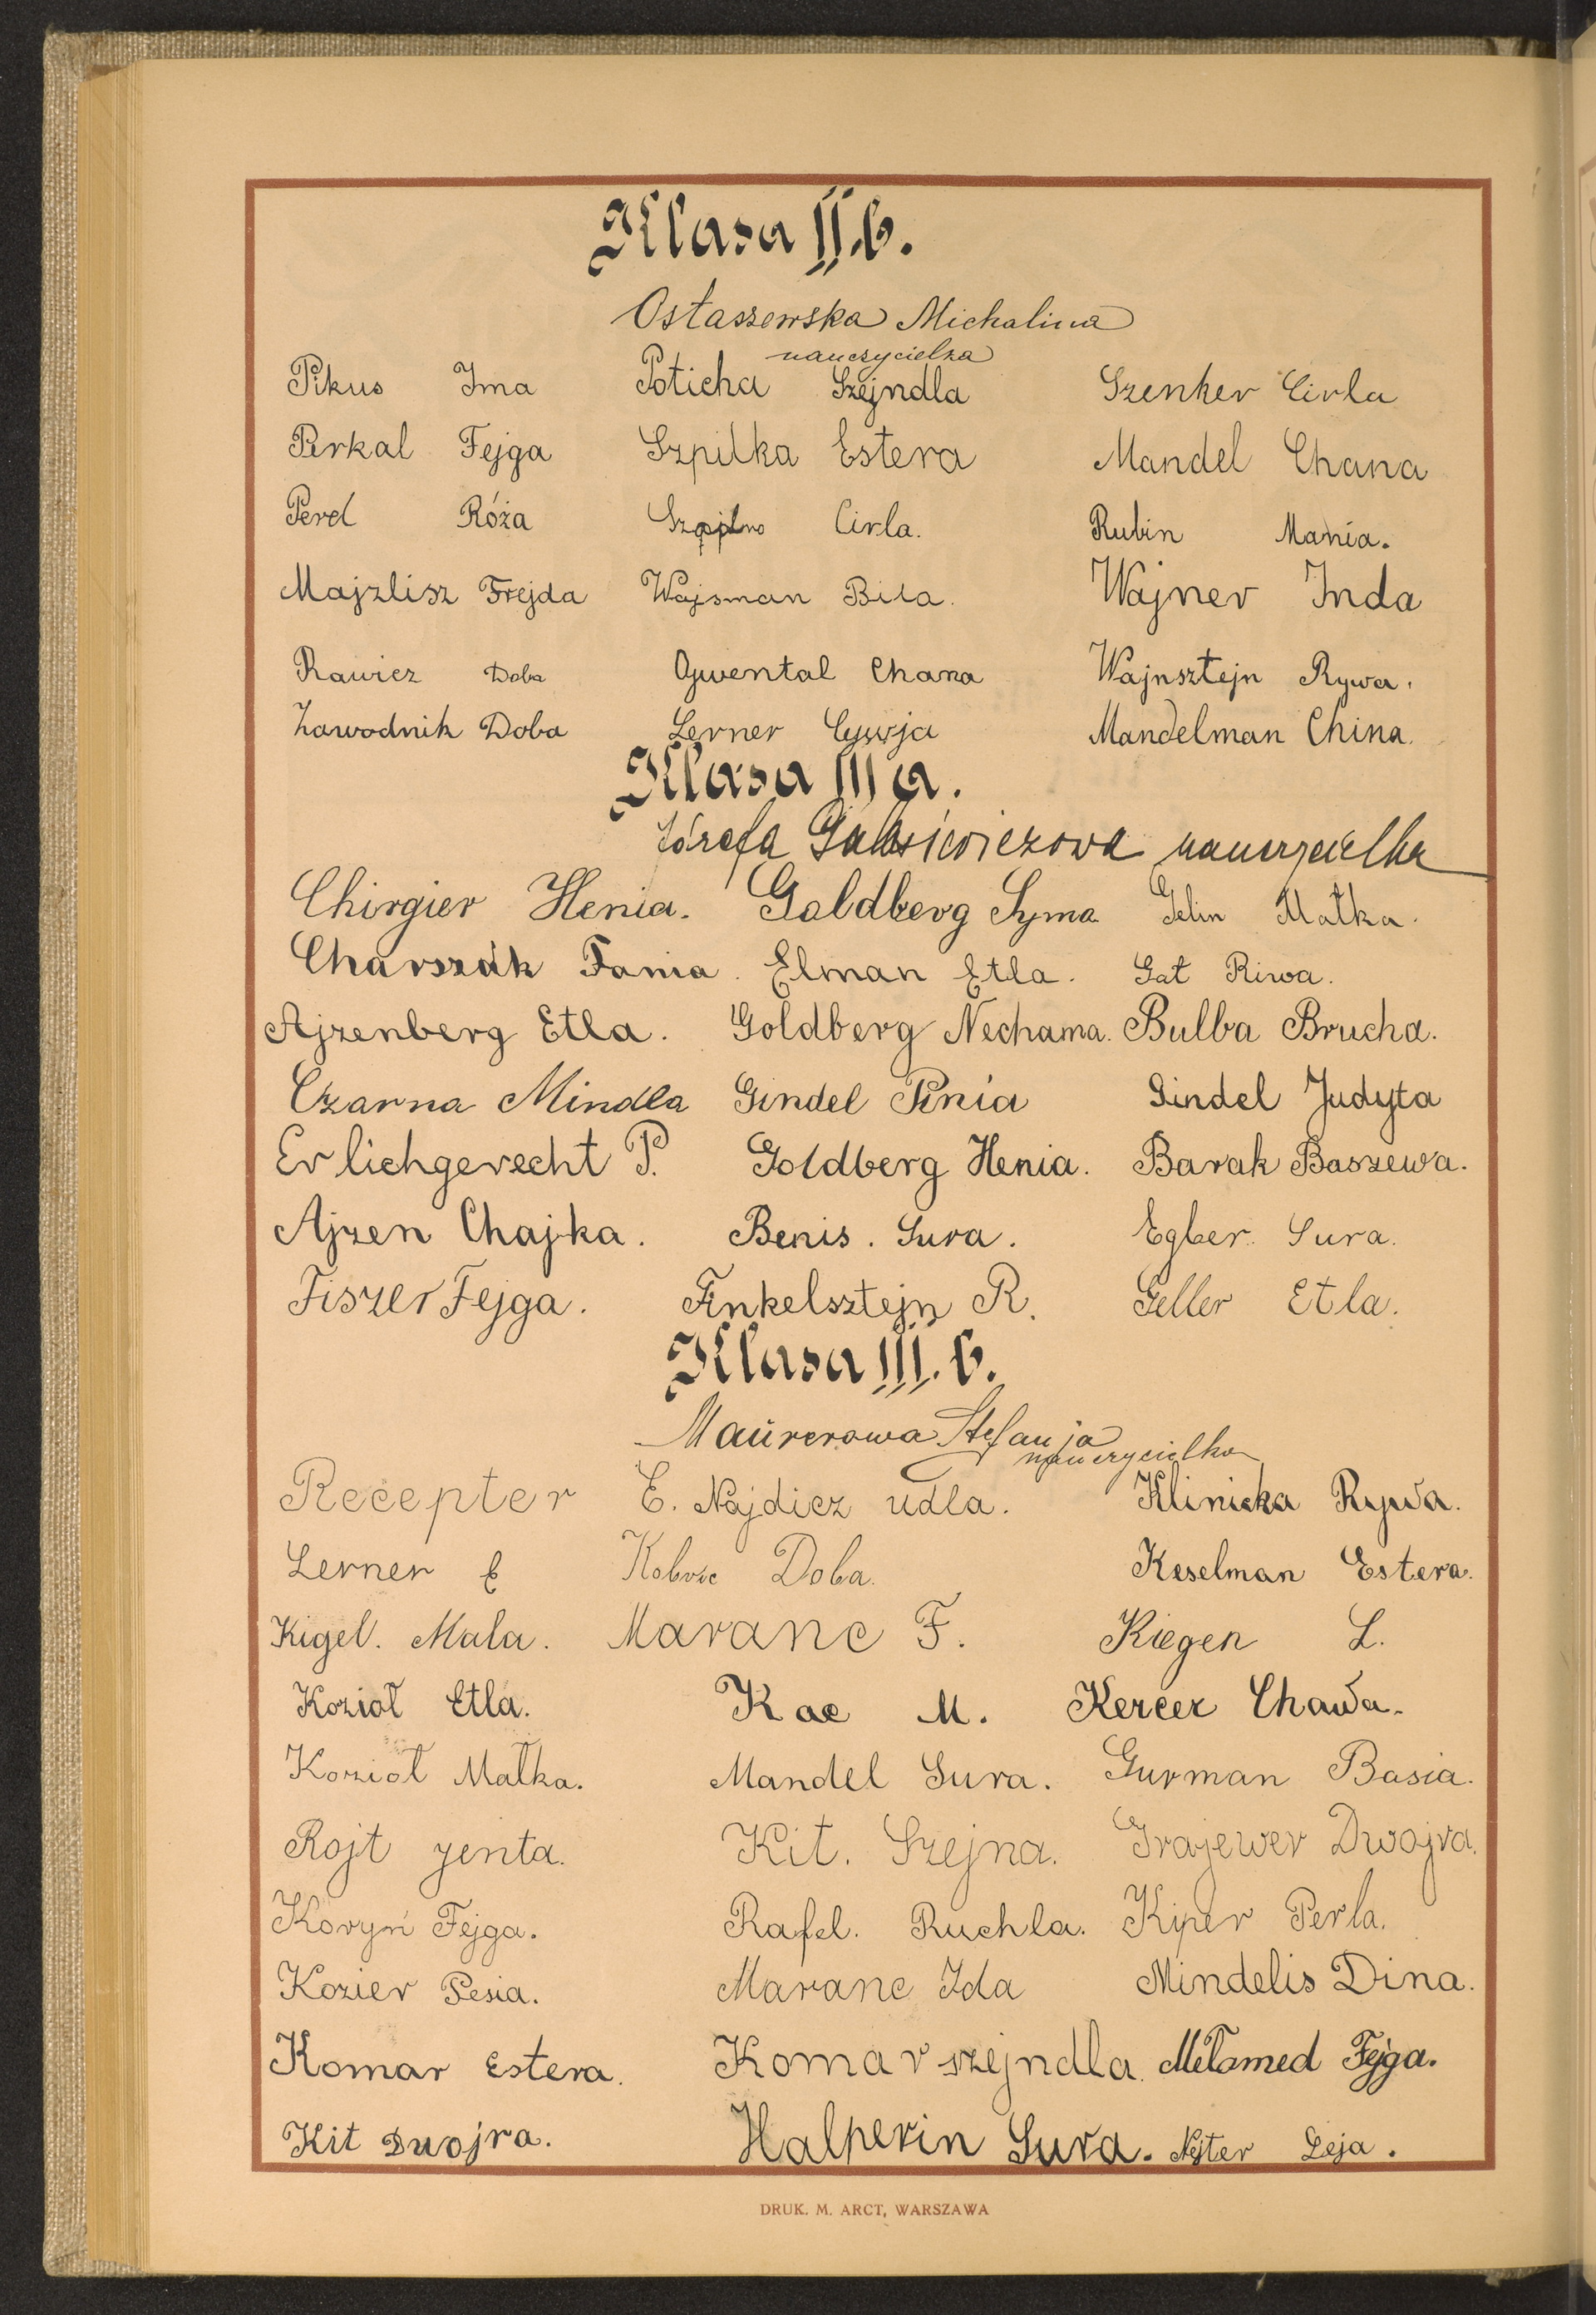 Klasa II.b.
Ostaszewska Michalina
nauczycielka
Pikus Ima Poticha Szejndla Szenker Cirla
Perkal Fejga Szpilka Estera Mandel Chana
Perel Róża Cirla. Rubin Mania.
Majzlisz Frejda Wajsman Biła. Wajner Inda
Rawicz Doba Ogwental Chana Wajnsztejn Rywa.
Zawodnik Doba Lerner Cywja Mandelman China.
Klasa III a.
Józefa nauczycielka
Chirgier Henia. Goldberg Syma Gelin Małka.
Charszak Fania. Elman Etla. Gat Riwa.
Ajzenberg Etla. Goldberg Nechama. Bulba Brucha.
Czarna Mindla Gindel Pinia Gindel Judyta
Erlichgerecht P. Goldberg Henia. Barak Baszewa.
Ajzen Chajka. Benis. Sura. Egber Sura.
Fiszer Fejga. Finkelsztejn R. Geller Etla.
Klasa III. b.
Maurerowa Stefanja
nauczycielka
Recepter E. Najdicz udla. Klinicka Rywa.
Lerner E Doba. Keselman Estera.
Kigel. Mala. Maranc F. Kiegen L.
Kozioł Etla. Kac M. Kercer Chawa.
Kozioł Małka. Mandel Sura. Gurman Basia.
Rojt jenta. Kit. Szejna. Grajewer Dwojra.
Koryń Fejga. Rafel. Ruchla. Kiper Perla.
Kozier Pesia. Maranc Ida Mindelis Dina.
Komar Estera. Komar szejndla. Mełamed Fejga.
Kit Dwojra. Halperin Sura. Nejter Leja.
DRUK. M. ARCT, WARSZAWA